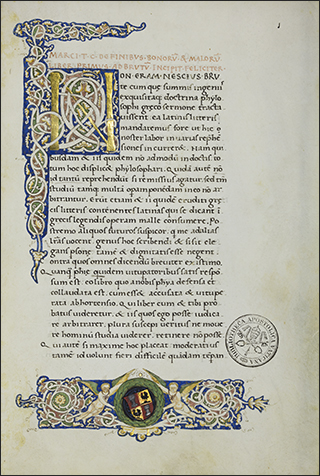 1
MARCI T. C. DE FINIBUS BONORŪ & MALORŪ
LIBER PRIMUS AD BRUTŪ INCIPIT FELICITER
NON ERAM NESCIUS BRU
te cum quę summis ingeniis
exquisitaq; doctrina phylo
sophi gręco sermone tracta
vissent ea latinis litteris
mandaremus fore ut hic
noster labor in varias repręhē
siones incurreret. Nam qui
busdam & iis quidem nō admodū indoctis to
tum hoc displicet phylosophari. Quidā autē nō
id tantū repręhendūt si remissius agatur. sed tm̄
studiū tamq; multā operam ponēdam in eo nō ar
bitrantur. Erūt etiam & ii quidē eruditi grę
cis litteris contēnentes latinas qui se dicant ī
gręcis legēdis operam malle consumere. Po
stremo aliquos futuros suspicor. q me ad alias
lr̄as vocent. genus hoc scribendi & si sit ele
gans personę tamē & dignitatis esse negent.
Contra quos omnes dicendū breviter existimo.
Quanq phię quidem vituperatoribus satis respō
sum est eo libro quo a nobis phia defensa et
collaudata est. cum esset & accusata & vitupe
rata ab hortensio. Qui liber cum & tibi pro
batus videretur. & iis quos ego posse iudica
re arbitrarer. plura suscepi veritus ne move
re hominū studia viderer. retinere nō posse.
Qui autē si maxime hoc placeat moderatius
tamē id volunt fieri difficilē quādam tēpan
BIBLIOTHECA APOSTOLICA VATICANA